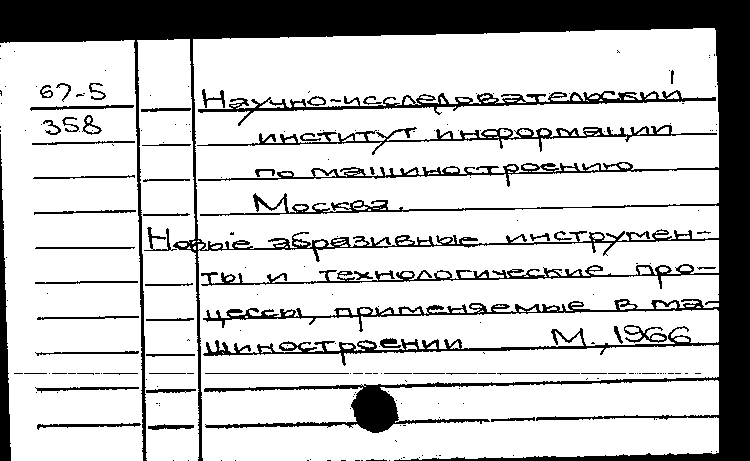 67-5
358
Научно-исследовательский
институт информации
по машиностроению
Москва.
Новые абразивные инструмен-
ты и технологические про-
цессы, применяемые в ма-
шиностроении М., 1966